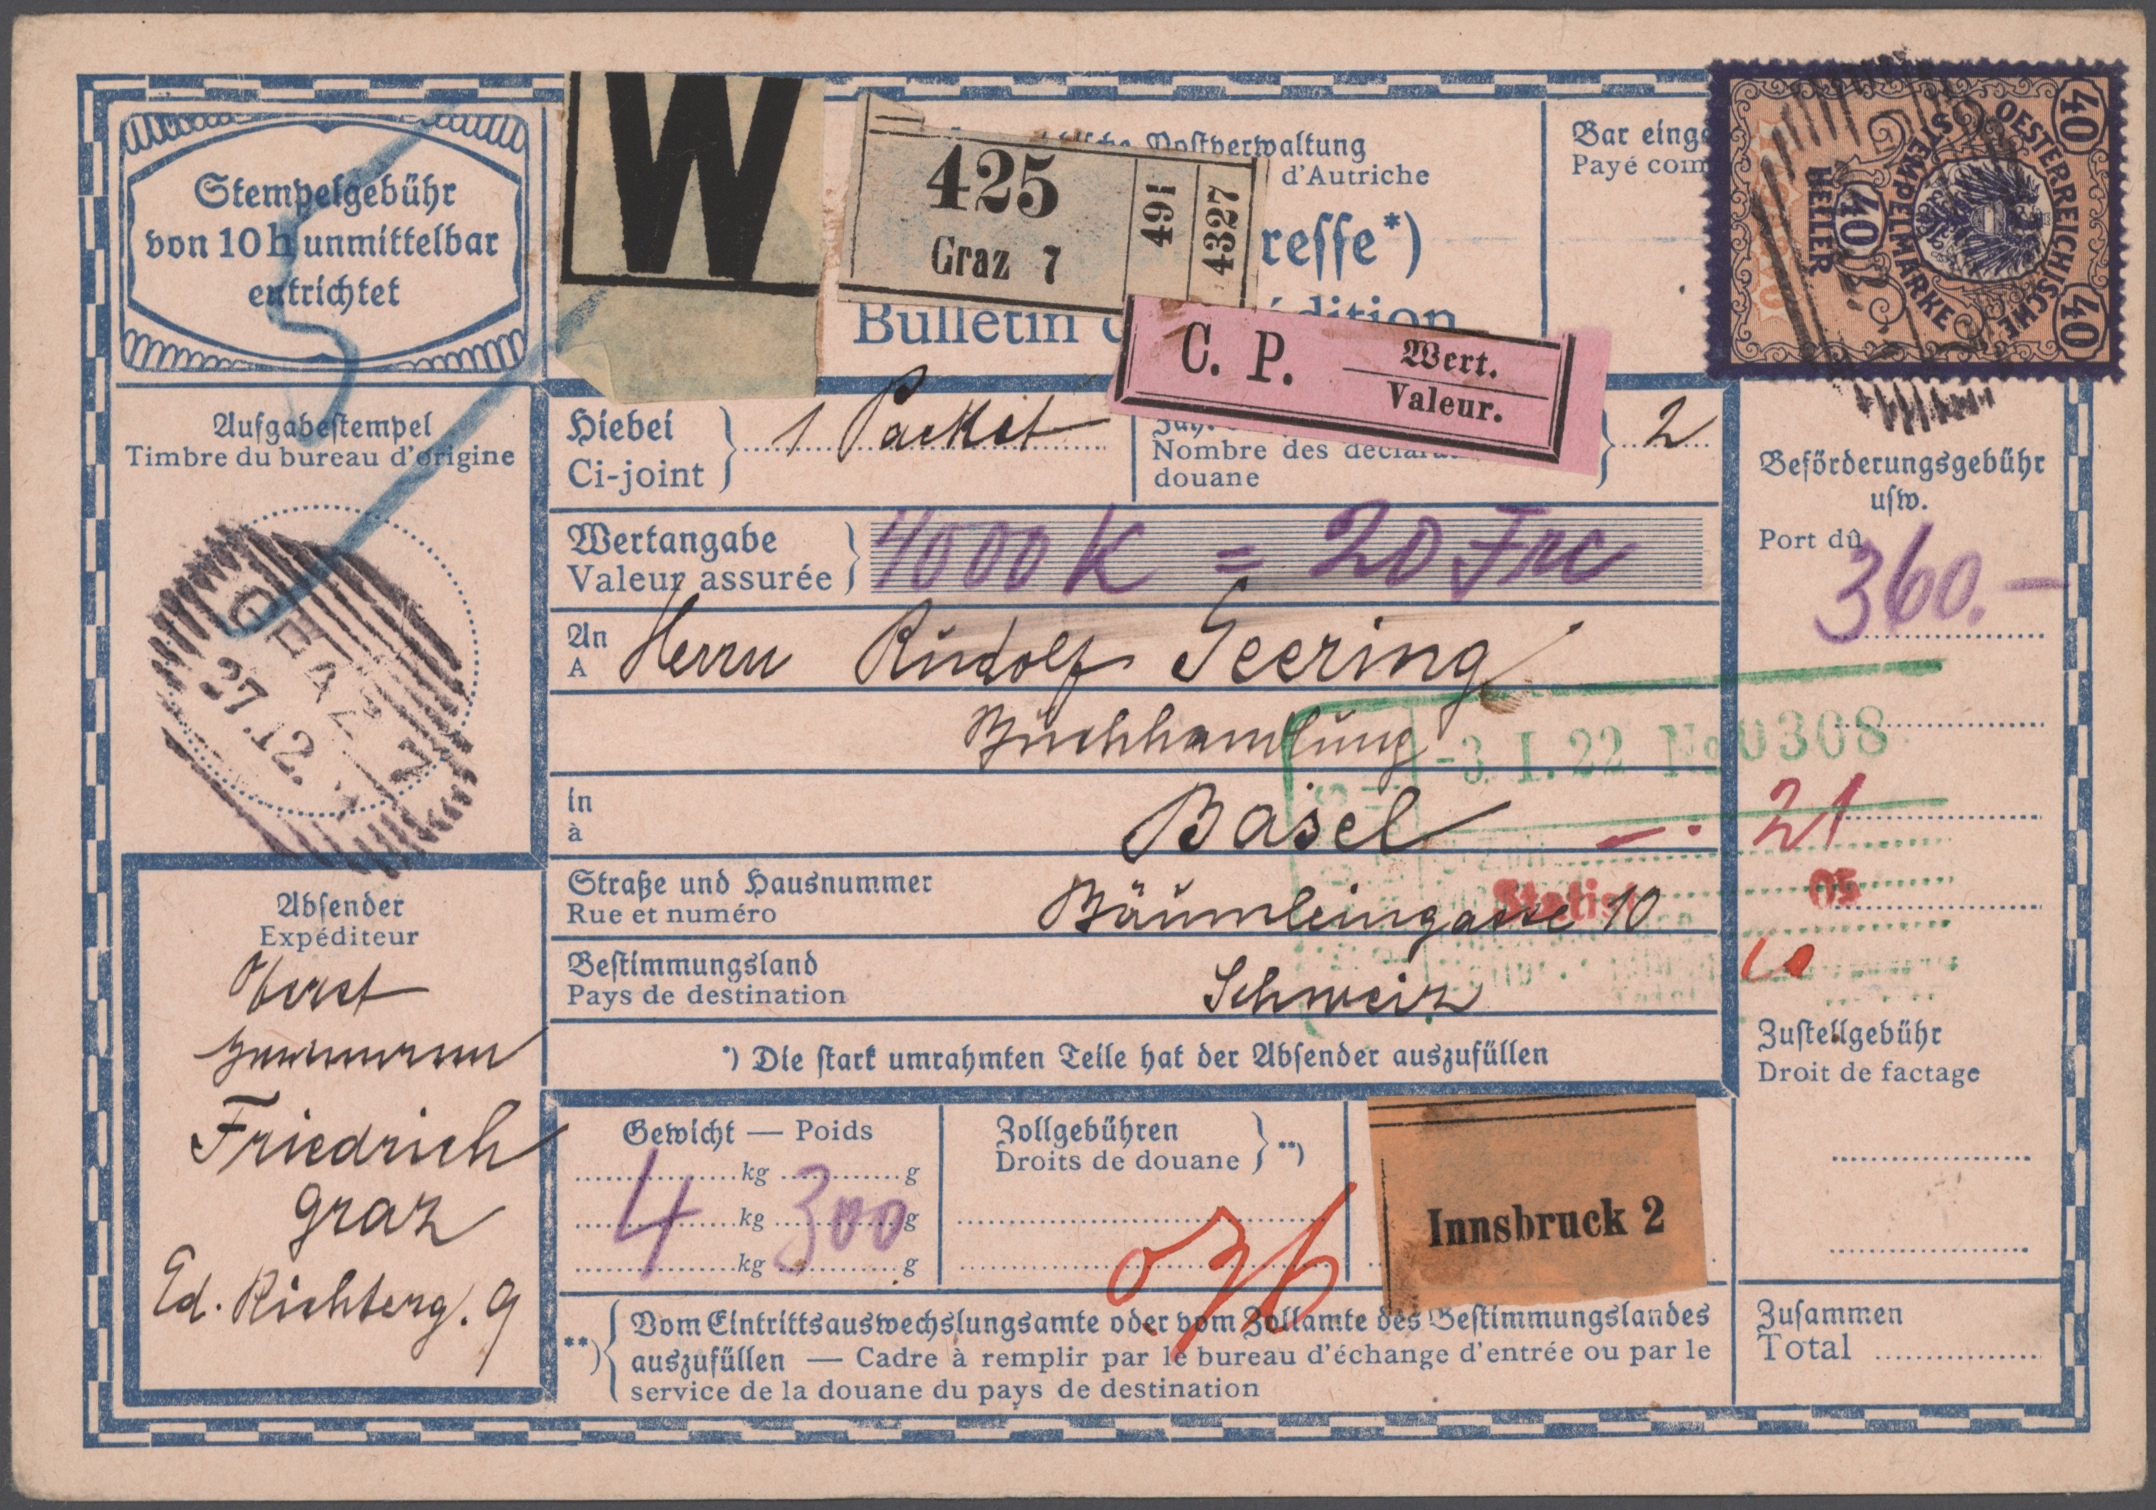 Stempelgebühr
von 10 h unmittelbar
entrichtet
W
425
Graz 7
491
4327
Postverwaltung
d'Autriche
resse*)
Bulletin
dition
C. P. Wert.
Valeur.
Bar
Payé
OESTERREICHISCHE
STEMPELMARKE
40
40
40
HELLER
Aufgabestempel
Timbre du bureau d'origine
GRAZ
27.12.
Hiebei
Ci-joint
1 Packet
Nombre des
douane
2
Wertangabe
Valeur assurée
4000 K = 20 Frc
An
A
Herrn Rudolf Geering
Buchhandlung
in
à
Basel
Straße und Hausnummer
Rue et numéro
Bäumleingasse 10
Bestimmungsland
Pays de destination
Schweiz
-3. I. 22 No 0308
*) Die stark umrahmten Teile hat der Absender auszufüllen
Beförderungsgebühr
usw.
Port dû
360.—
— . 21
05
Zustellgebühr
Droit de factage
Absender
Expéditeur
Oberst
Friedrich
Graz
Ed. Richterg. 9
Gewicht — Poids
kg g
kg g
kg g
4 300
Zollgebühren
Droits de douane
**)
Innsbruck 2
**) Vom Eintrittsauswechslungsamte oder vom Zollamte des Bestimmungslandes
auszufüllen — Cadre à remplir par le bureau d'échange d'entrée ou par le
service de la douane du pays de destination
Zusammen
Total